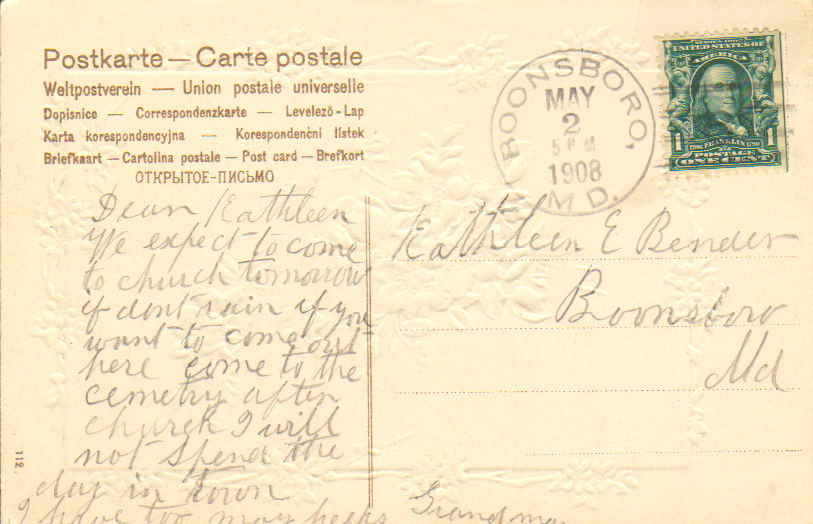 Postkarte — Carte postale
Weltpostverein — Union postale universelle
Dopisnice — Correspondenzkarte — Levelező-Lap
Karta korespondencyjna — Korespondenčni listek
Briefkaart — Cartolina postale — Post card — Brefkort
ОТКРЫТОЕ-ПИСЬМО
BOONSBORO,
MAY
2
5 PM
1908
MD.
UNITED STATES OF
AMERICA
1 FRANKLIN 1
POSTAGE
ONE CENT
Dear Kathleen
We expect to come
to church tomorrow
if dont rain if you
want to come out
here come to the
cemetry after
church I will
not spend the
day in town
I have too may
Grandma
Kathleen E Bender
Boonsboro
Md
112.